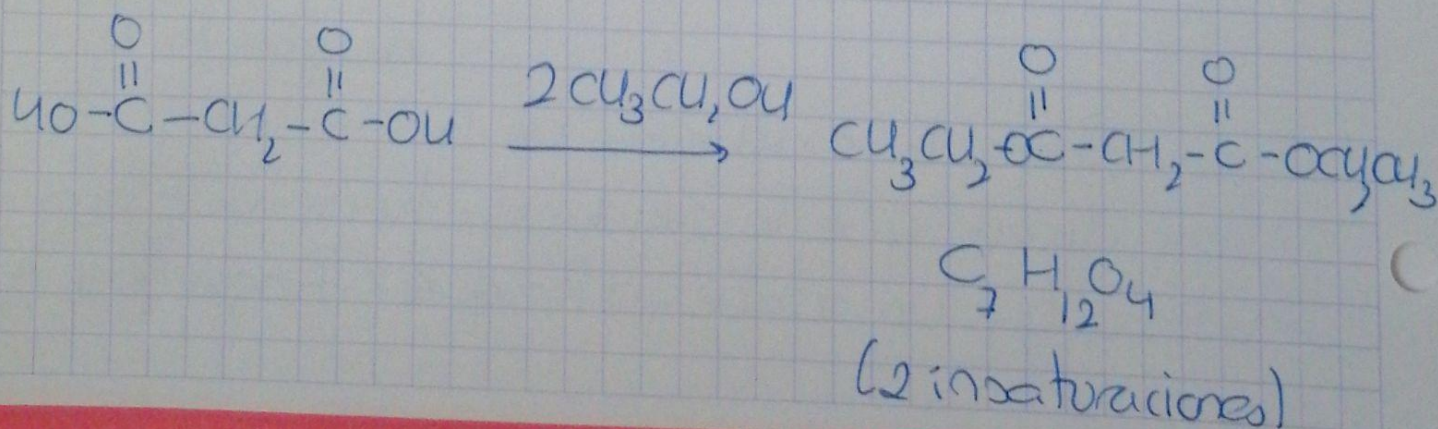 O O O O
|| || || ||
HO-C-CH2-C-OH 2CH3CH2OH CH3CH2-OC-CH2-C-OCH2CH3
C7H12O4
(2 insaturaciones)